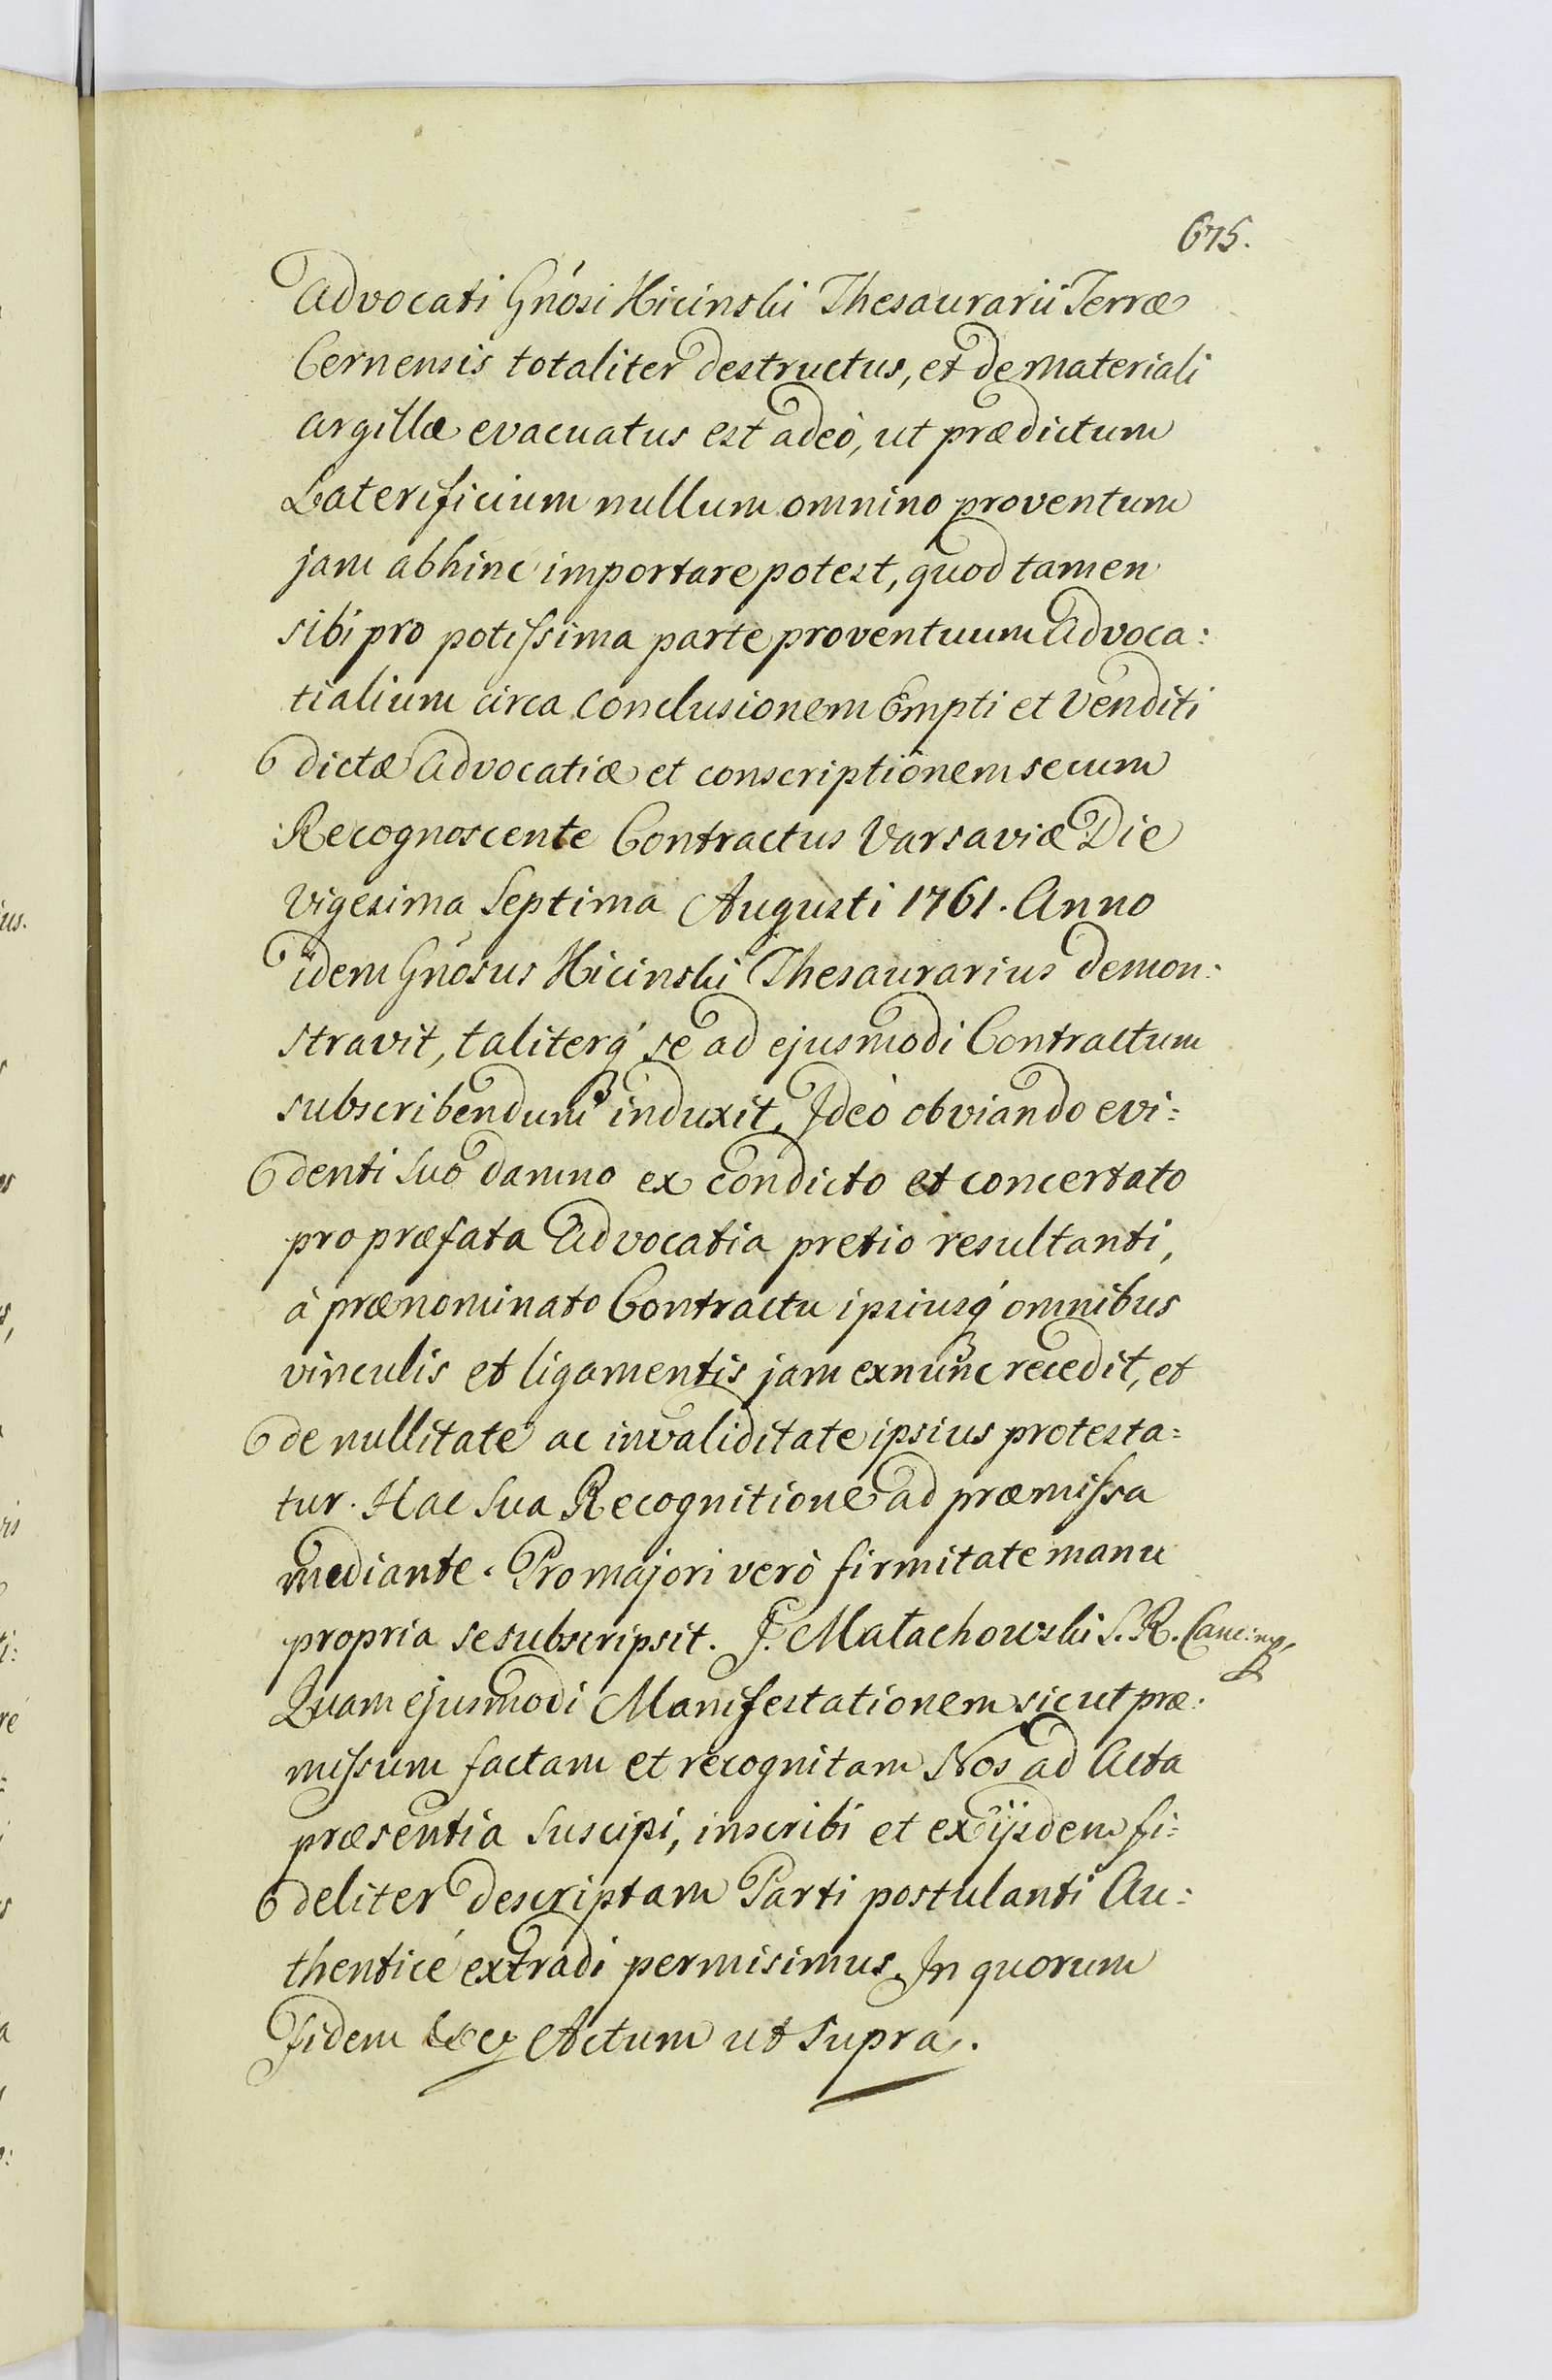 675.
Advocati Gnõsi Kicinski Thesaurarii Terræ
Cernensis totaliter destructus, et de materiali
argillæ evacuatus est adeò, ut prædictum
Laterificium nullum omnino proventum
jam abhinc importare potest, quod tamen
sibi pro potissima parte proventuum Advoca:
tialium circa conclusionem Empti et Venditi
dictæ Advocatiæ et conscriptionem secum
Recognoscente Contractus Varsaviæ Die
Vigesima Septima Augusti 1761. Anno
idem Gnõsus Kicinski Thesaurarius demon:
stravit, taliterq́ se ad ejusmodi Contractum
subscribendum induxit, Ideò obviando evi:
denti suo damno ex condicto et concertato
pro præfata Advocatia pretio resultanti,
à prænominato Contractu ipsiusq́ omnibus
vinculis et ligamentis jam exnunc recedit, et
de nullitate ac invaliditate ipsius protesta:
tur. Hac sua Recognitione ad præmissa
mediante. Pro majori verò firmitate manu
propria se subscripsit. J. Małachowski S. R. Canc: mp
Quam ejusmodi Manifestationem sicut præ:
missum factam et recognitam Nos ad Acta
præsentia suscipi, inscribi et ex ijsdem fi:
deliter descriptam Parti postulanti Au:
thenticé extradi permisimus. In quorum
Fidem Actum ut supra.